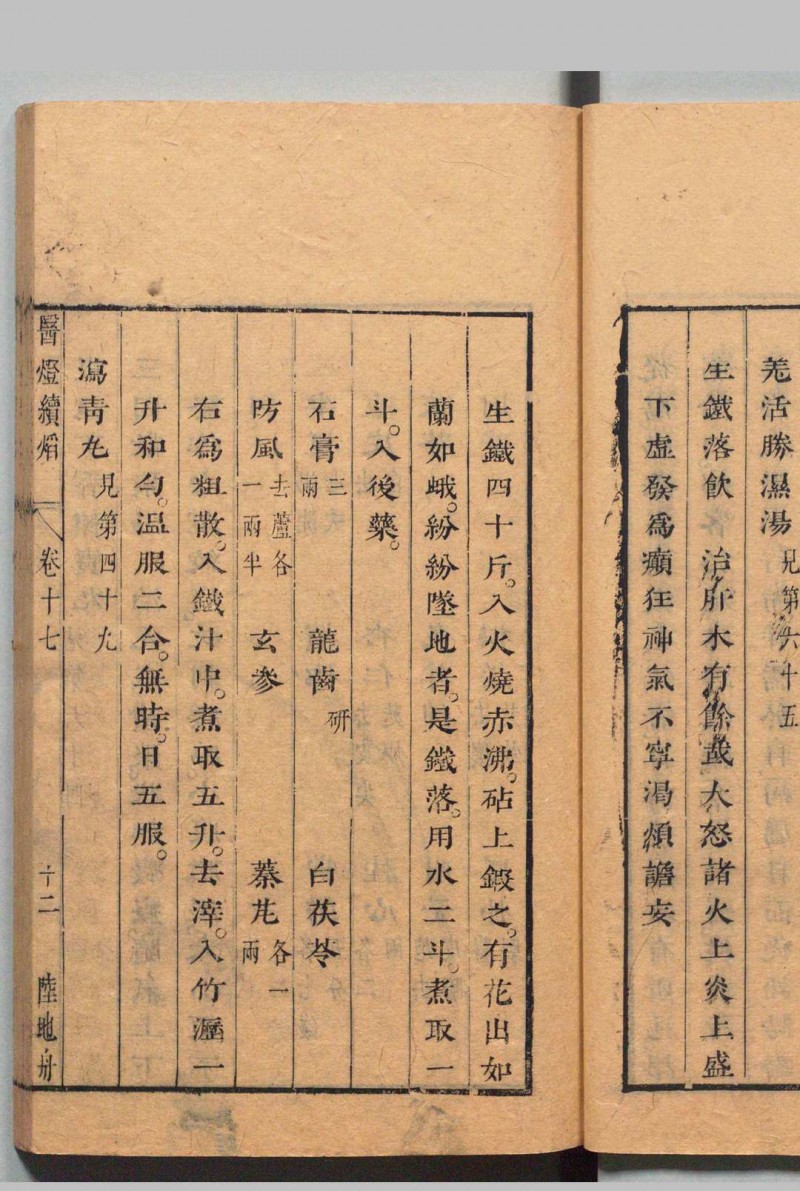 羌活勝濕湯 見第六十五
生鐵落飲 治肝木有餘或大怒諸火上炎上盛
下虛發為癲狂神氣不寧渴煩譫妄
生鐵四十斤。入火燒赤沸。砧上鍛之。有花出如
蘭如蛾。紛紛墜地者。是鐵落。用水二斗。煮取一
斗。入後藥。
石膏 三兩 龍齒 研 白茯苓
防風 去蘆各一兩半 玄參 蓁芃 各一兩
右為粗散。入鐵汁中。煮取五升。去滓。入竹瀝一
升和勻。溫服二合。無時。日五服。
瀉青丸 見第四十九
醫燈續熖 卷十七 十二 陸地舟